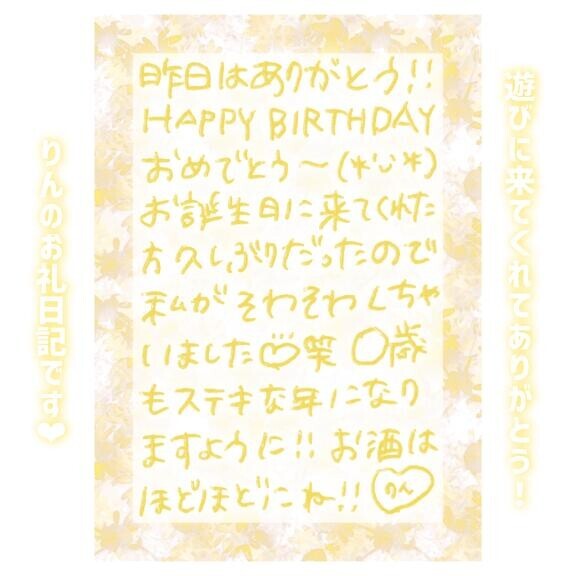 遊びに来てくれてありがとう！
昨日はありがとう!!
HAPPY BIRTHDAY
おめでとう〜(*'ᴗ'*)
お誕生日に来てくれた
方久しぶりだったので
私がそわそわしちゃ
いました♡笑 〇歳
もステキな年になり
ますように!! お酒は
ほどほどにね!! りん
りんのお礼日記です❤